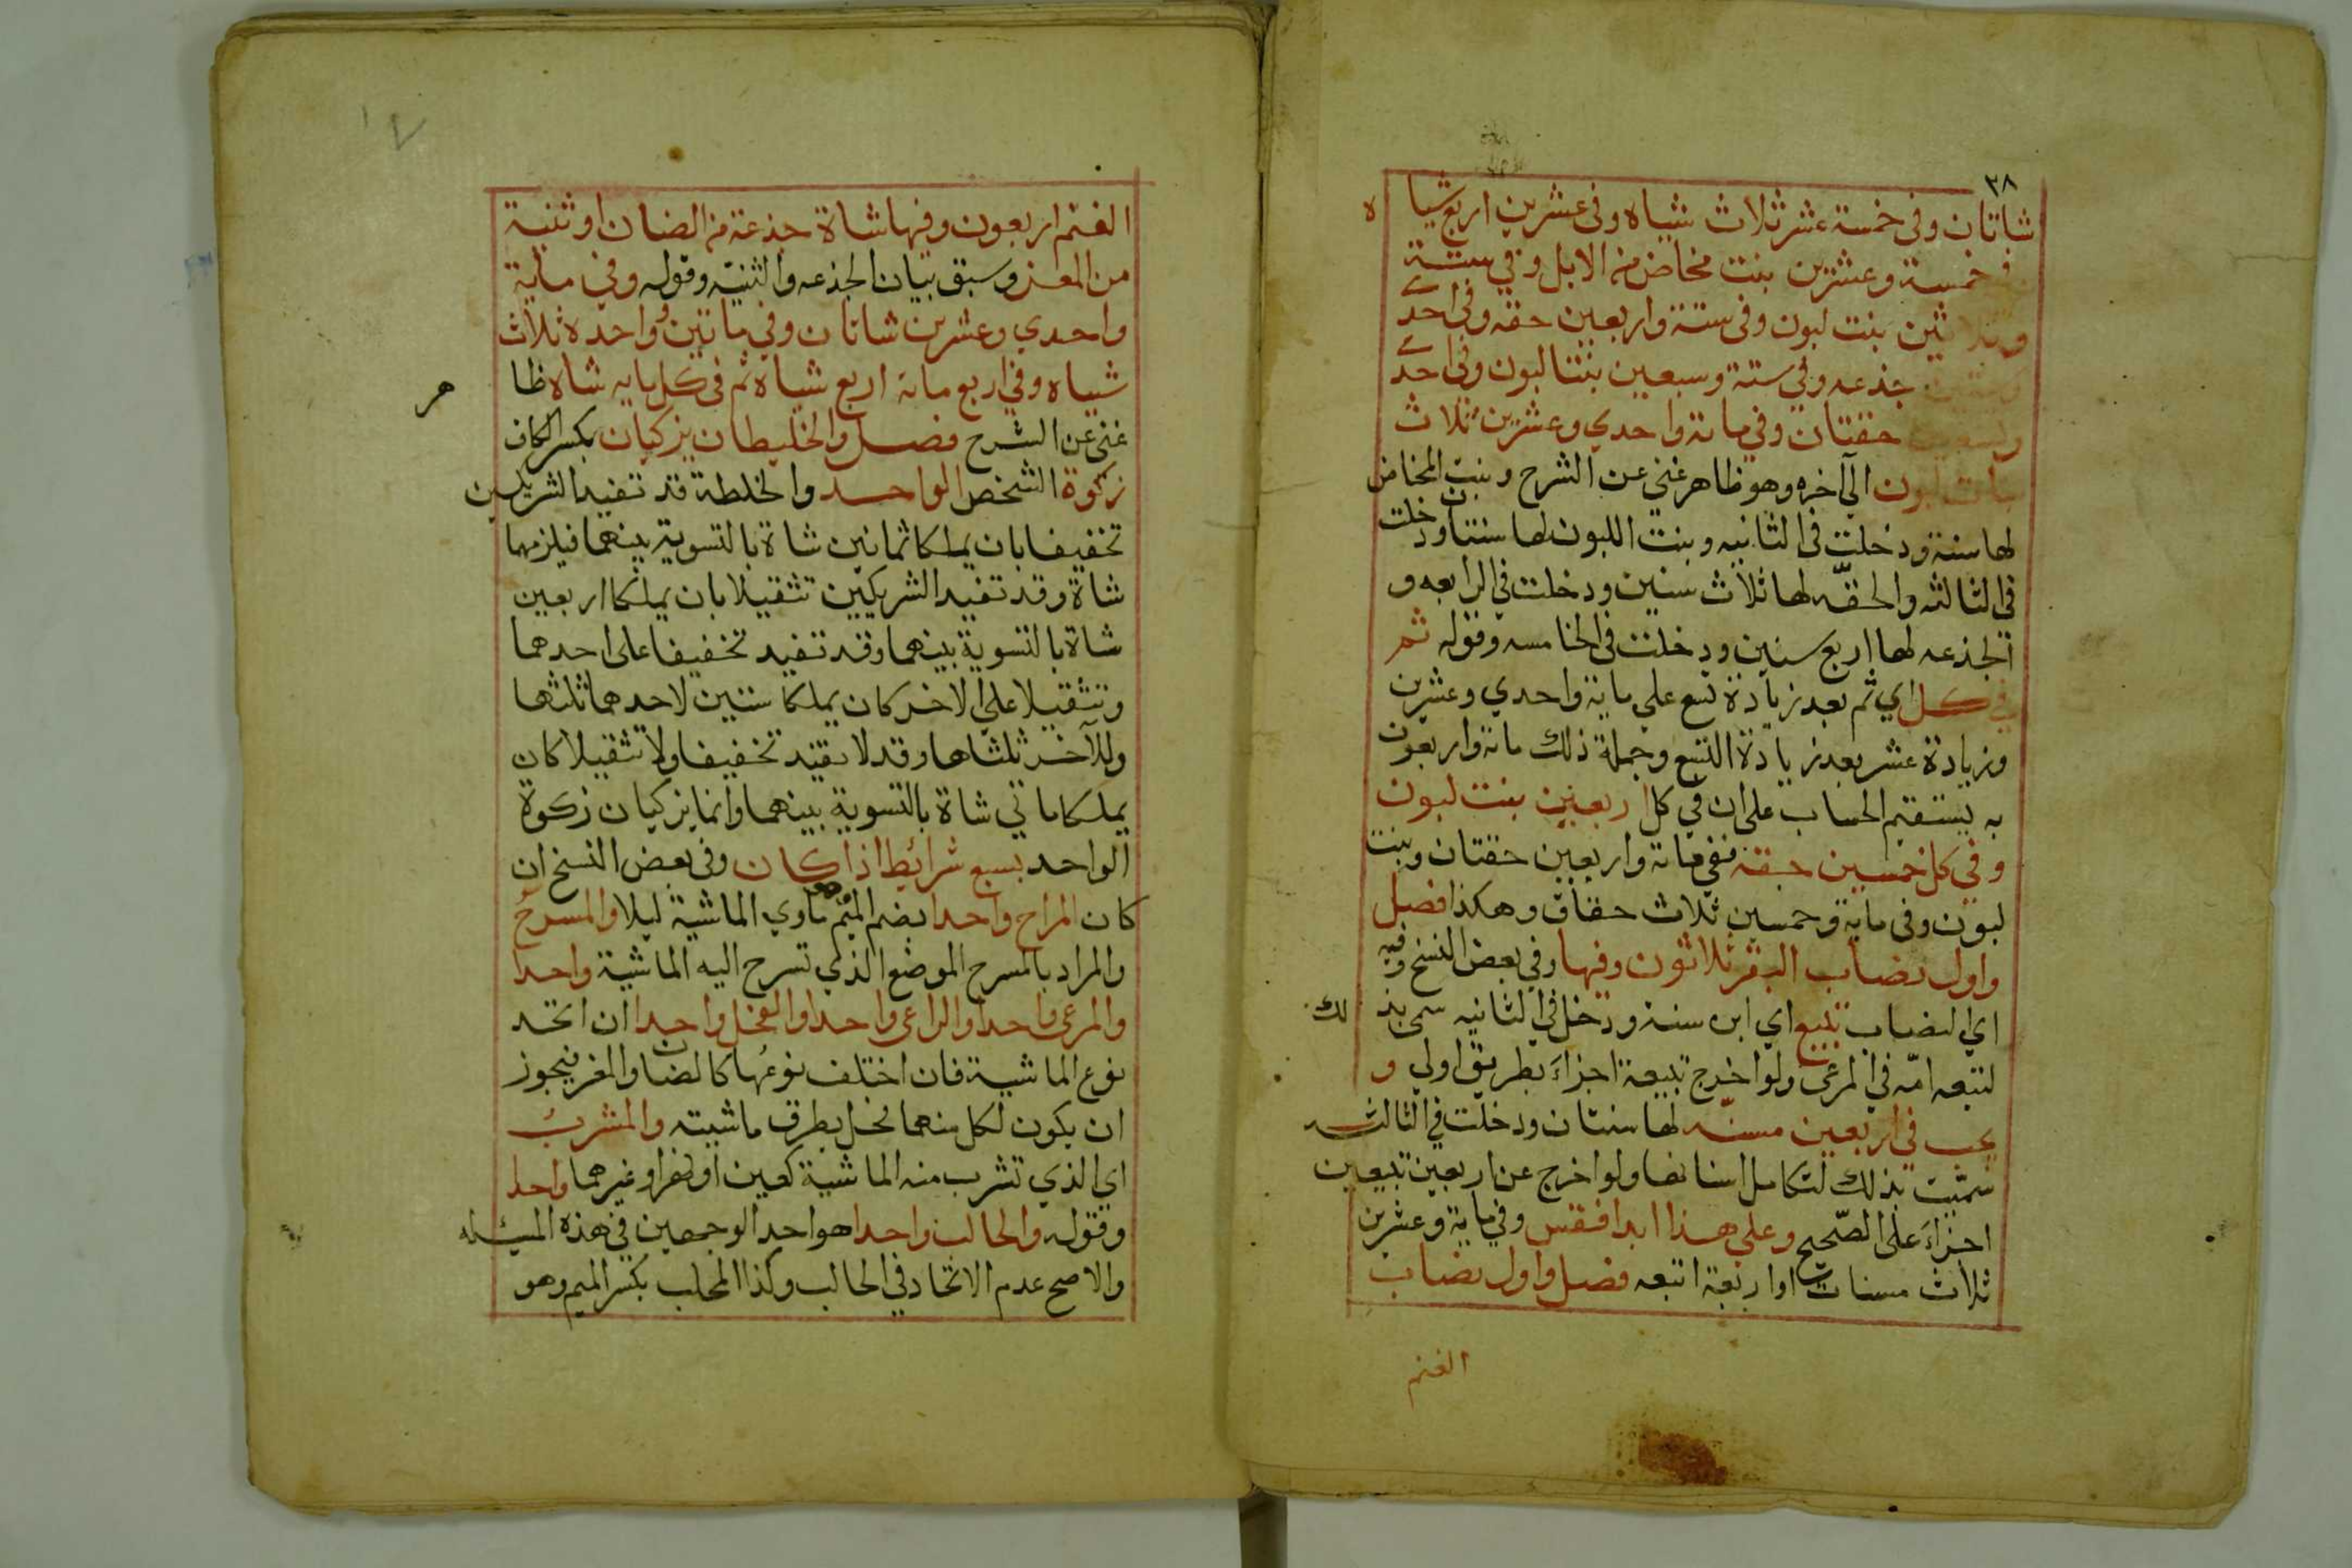 ٢٨
شاتان وفى خمسة عشر ثلاث شياه وفى عشرين اربع شيا ه
خمسة وعشرين بنت مخاض من الابل وفي ستة
وثلاثين بنت لبون وفى ستة واربعين حقه وفى احدى
وستين جذعه وفي ستة وسبعين بنتا لبون وفى احدى
وتسعين حقتان وفي ماىة واحدي وعشرين ثلاث
بنات لبون الى آخره وهو ظاهر غني عن الشرح وبنت المخاض
لها سنة ودخلت في الثانيه وبنت اللبون لها سنتان ودخلت
في الثالثه والحقّه لها ثلاث سنين ودخلت في الرابعه و
الجذعه لها اربع سنين ودخلت في الخامسه وقوله ثم
في كل اي ثم بعد زيادة تسع على ماية واحدي وعشرين
وزيادة عشر بعد زيادة التسع وجملة ذلك ماىة واربعون
به يستقيم الحساب على ان في كل اربعين بنت لبون
وفي كل خمسين حقة ففي ماىة واربعين حقتان وبنت
لبون وفى ماية وخمسين ثلاث حقاق وهكذا فصل
واول نصاب البقر ثلاثون وفيها وفي بعض النسخ وفيه
اي النصاب تبيع اي ابن سنة ودخل في الثانيه سمى بذ لك
لتبعه امّه في المرعى ولو اخرج تبيعة اجزاءَ بطريق اولي و
يجب في اربعين مسنّه لها سنتان ودخلت في الثالثه
سمّيت بذلك لتكامل اسنانها ولو اخرج عن اربعين تبيعين
اجزاءَ على الصّحيح وعلي هذا ابدا فقس وفي ماية وعشرين
ثلاث مسنات او اربعة اتبعه فصل واول نصاب
الغنم
١٧
الغنم اربعون وفيها شاة جذعة من الضان او ثنية
من المعز وسبق بيان الجذعه والثنيّه وقوله وفي ماية
واحدي وعشرين شاتان وفي ماىتين وواحده ثلاث
شياه وفي اربع ماىة اربع شياه ثم في كل مايه شاة ظا هر
غني عن الشرح فصل والخليطان يزكيان بكسر الكاف
زكوة الشخص الواحد والخلطة قد تفيد الشريكين
تخفيفا بان يملكا ثمانين شاة بالتسوية بينهما فيلزمهما
شاة وقد تفيد الشريكين تثقيلا بان يملكا اربعين
شاة بالتسوية بينهما وقد تفيد تخفيفا على احدهما
وتثقيلا علي الاخر كان يملكا ستين لاحدهما ثلثها
وللآخر ثلثاها وقد لا تفيد تخفيفا ولا تثقيلا كان
يملكا ماتي شاة بالتسوية بينهما وانما يزكيان زكوة
الواحد بسبع شرائط اذا كان وفى بعض النسخ ان
كان المراح واحدا بضم الميم ماوي الماشية ليلا والمسرح
والمراد بالمسرح الموضع الذي تسرح اليه الماشية واحدا
والمرعى واحدا والراعى واحدا والفحل واحدا ان اتحد
نوع الماشية فان اختلف نوعها كالضان والمعز فيجوز
ان يكون لكل منهما فحل يطرق ماشيته والمشرب
اي الذي تشرب منه الماشية كعين او نهر او غيرهما واحدا
وقوله والحالب واحدا هو احد الوجهين في هذه المسئله
والاصح عدم الاتحاد في الحالب وكذا المحلب بكسر الميم وهو